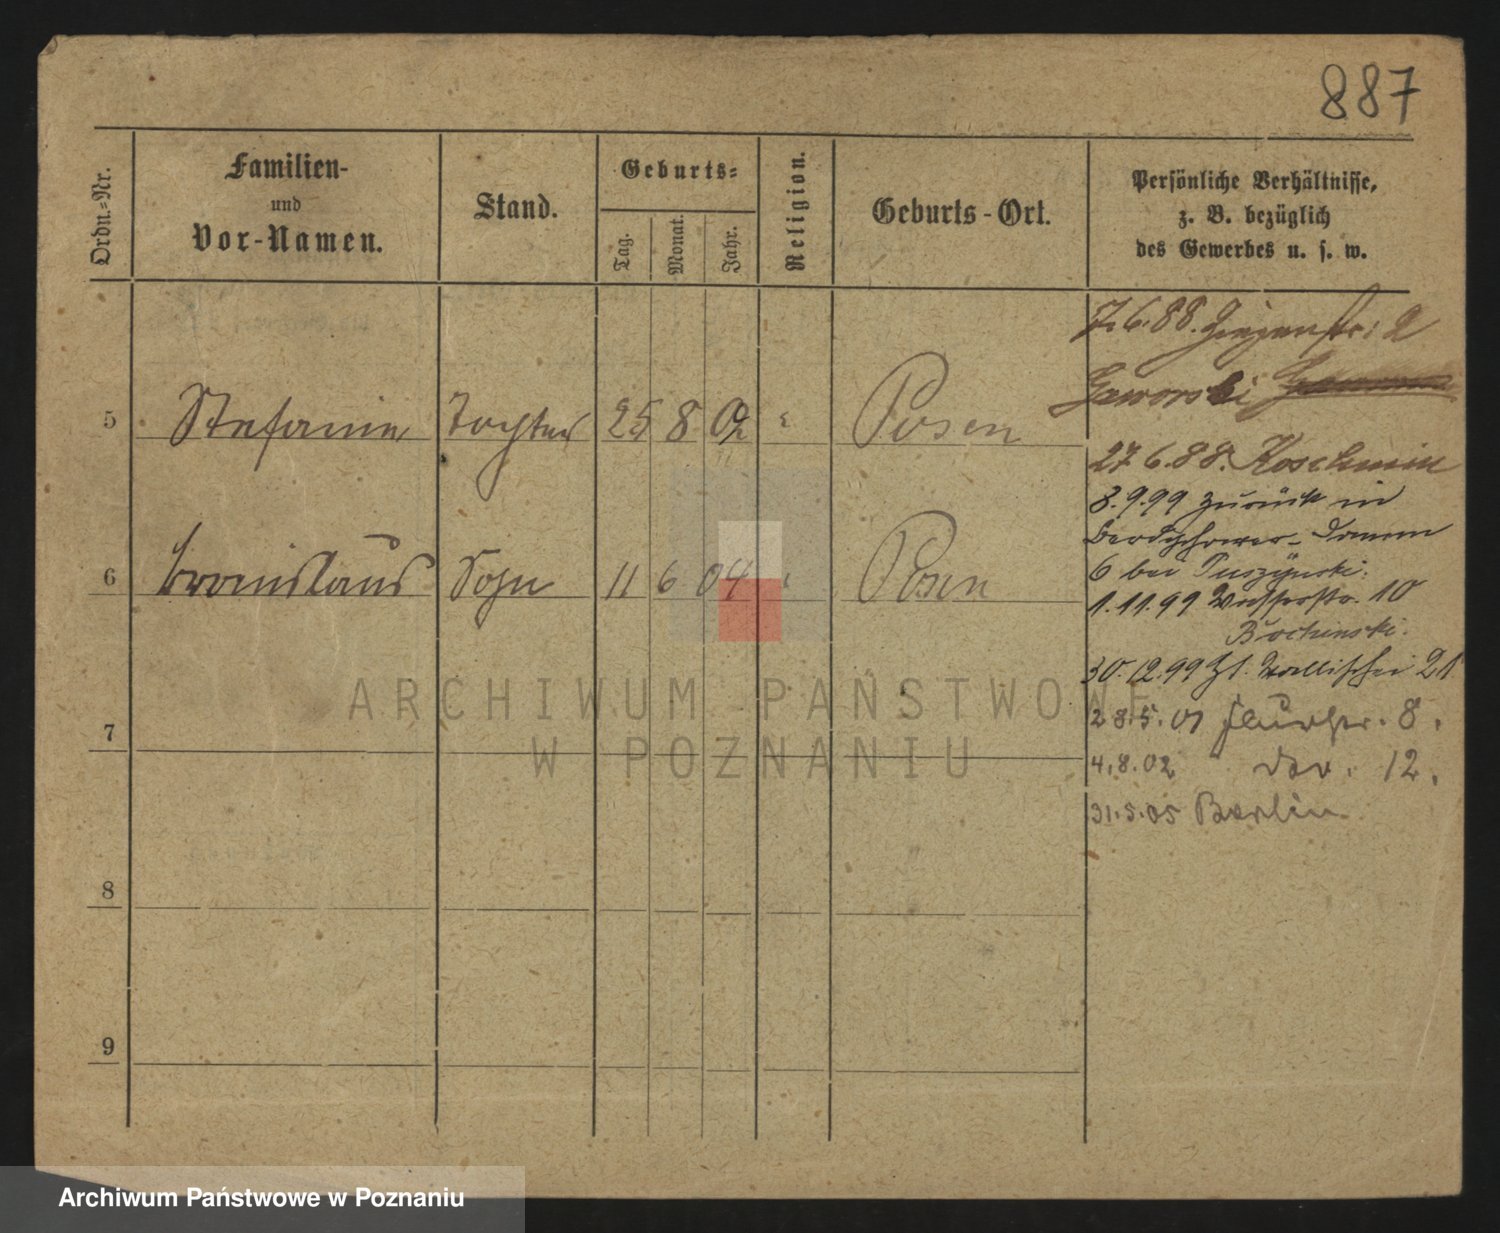 887
Ordn.-Nr.
Familien-
und
Vor-Namen.
Stand.
Geburts-
Tag.
Monat.
Jahr.
Religion.
Geburts-Ort.
Persönliche Verhältnisse,
z. B. bezüglich
des Gewerbes u. s. w.
7.6.88. 2
Gaworski
5 Stefanie Tochter 25 8 02 Posen
27.6.88. Koschmin
8.9.99 zurück in
Damm
6 Bronislaus Sohn 11 6 04 Posen
6 bei
1.11.99 10
30.12.99 Wallischei 21
7
28.5.01 8.
4.8.02 12.
31.5.05 Berlin
8
9
ARCHIWUM PAŃSTWOWE
W POZNANIU
Archiwum Państwowe w Poznaniu